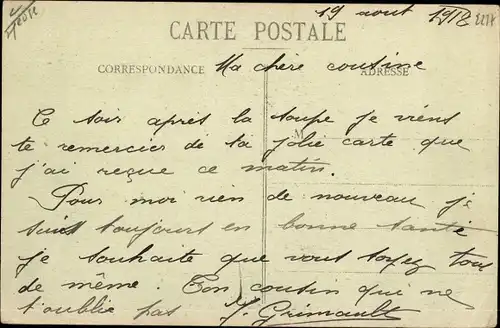 19 août 1918
CARTE POSTALE
CORRESPONDANCE Ma chère cousine ADRESSE
Ce soir après la soupe je viens
M
te remercier de ta jolie carte que
j'ai reçue ce matin.
Pour moi rien de nouveau je
suis toujours en bonne santé
je souhaite que vous soyez tous
de même. Ton cousin qui ne
t'oublie pas J. Grimault